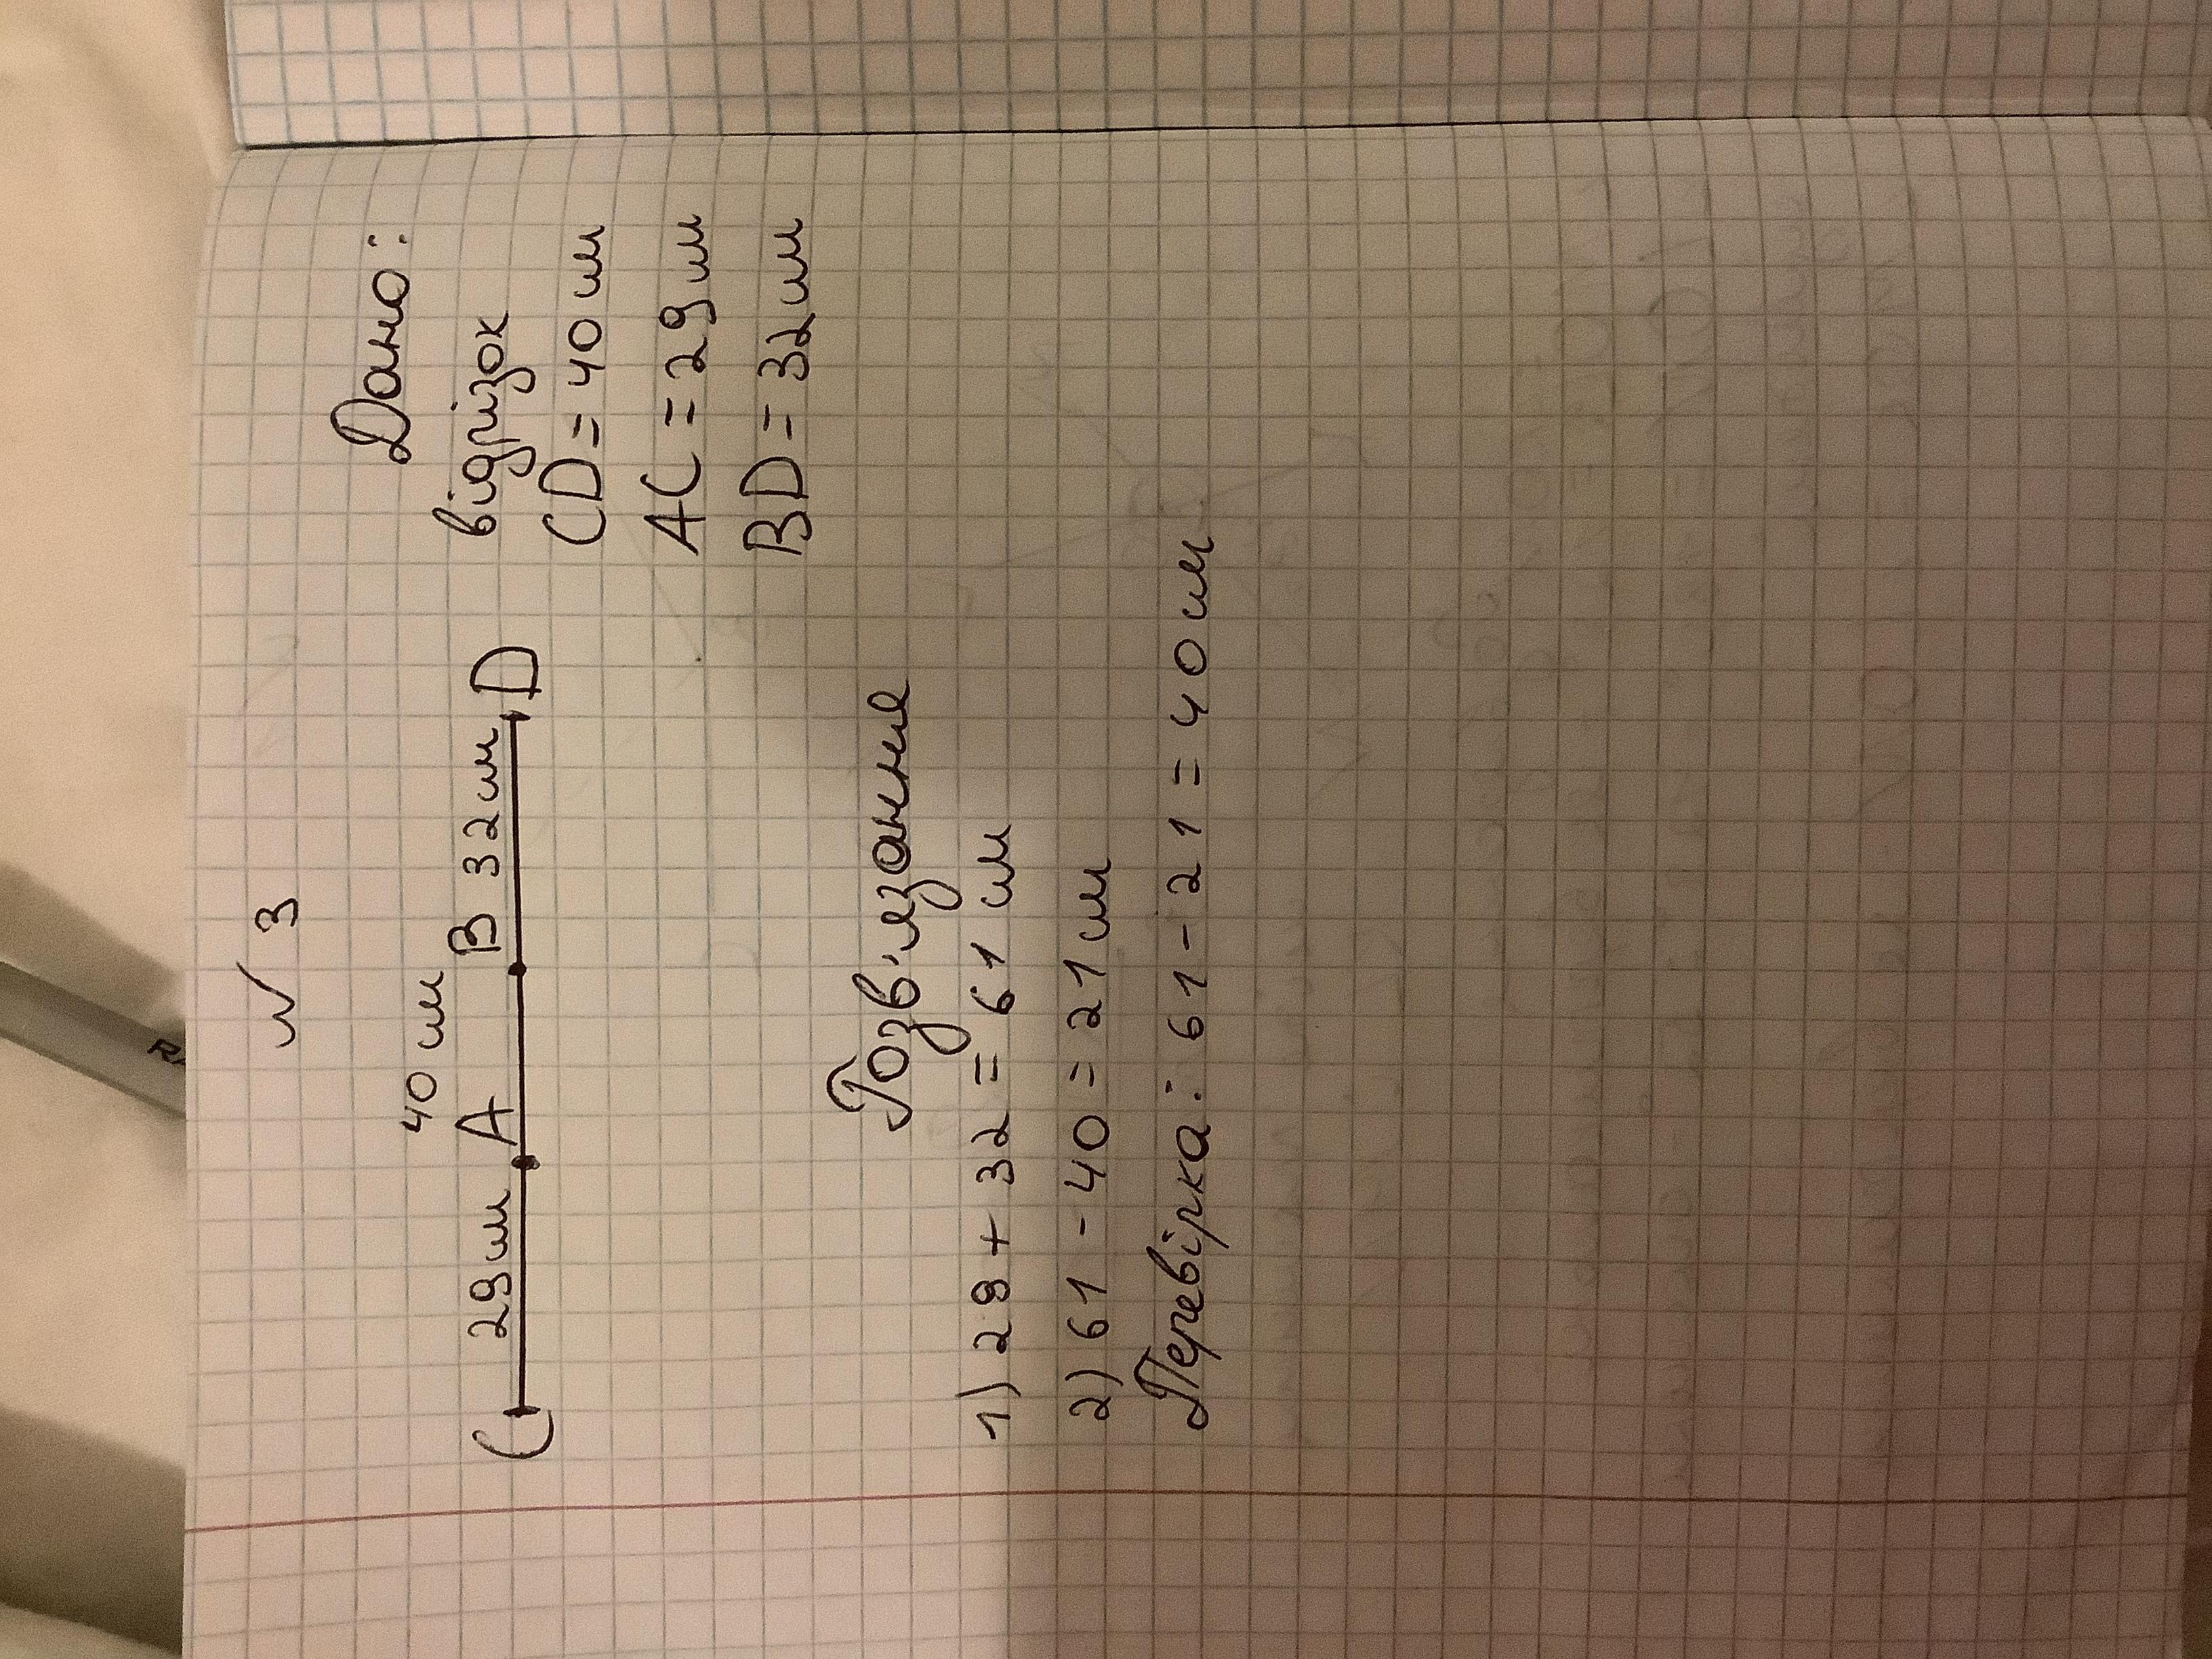 № 3
Дано:
40 см
відрізок
C 29 см A B 32 см D
CD = 40 см
AC = 29 см
BD = 32 см
Розв'язання
1) 29 + 32 = 61 см
2) 61 - 40 = 21 см
Перевірка: 61 - 21 = 40 см